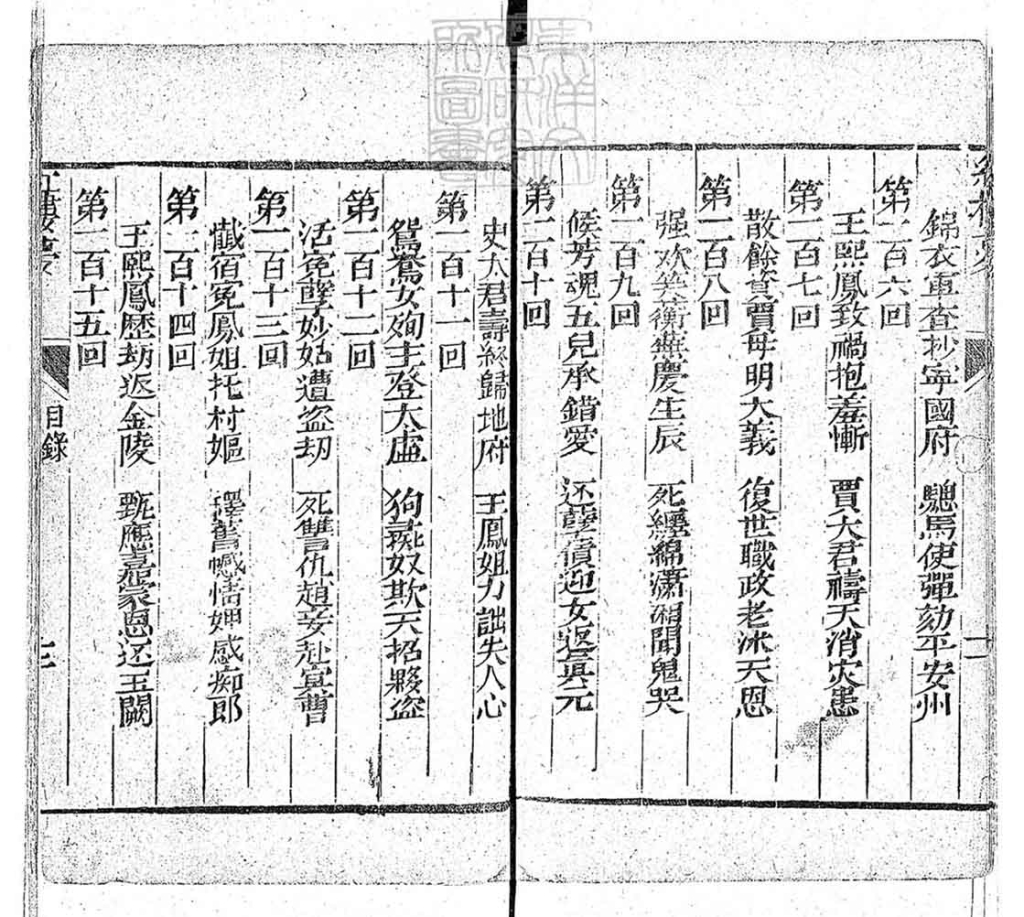 錦衣軍查抄寜國府 驄馬使彈劾平安州
第一百六回
王熙鳳致禍抱羞慚 賈太君禱天消灾患
第一百七回
散餘資賈母明大義 復世職政老沐天恩
第一百八回
强欢笑蘅蕪慶生辰 死纏綿瀟湘聞鬼哭
第一百九回
候芳魂五兒承錯愛 还孽債迎女返真元
第一百十回
史太君壽終歸地府 王鳳姐力詘失人心
第一百十一回
鴛鴦女殉主登太虛 狗彘奴欺天招夥盗
第一百十二回
活冤孽妙姑遭盗劫 死讐仇趙妾赴冥曹
第一百十三回
懺宿冤鳳姐托村嫗 釋舊憾情婢感痴郎
第一百十四回
王熙鳳歷劫返金陵 甄應嘉蒙恩还玉闕
第一百十五回
目錄
三